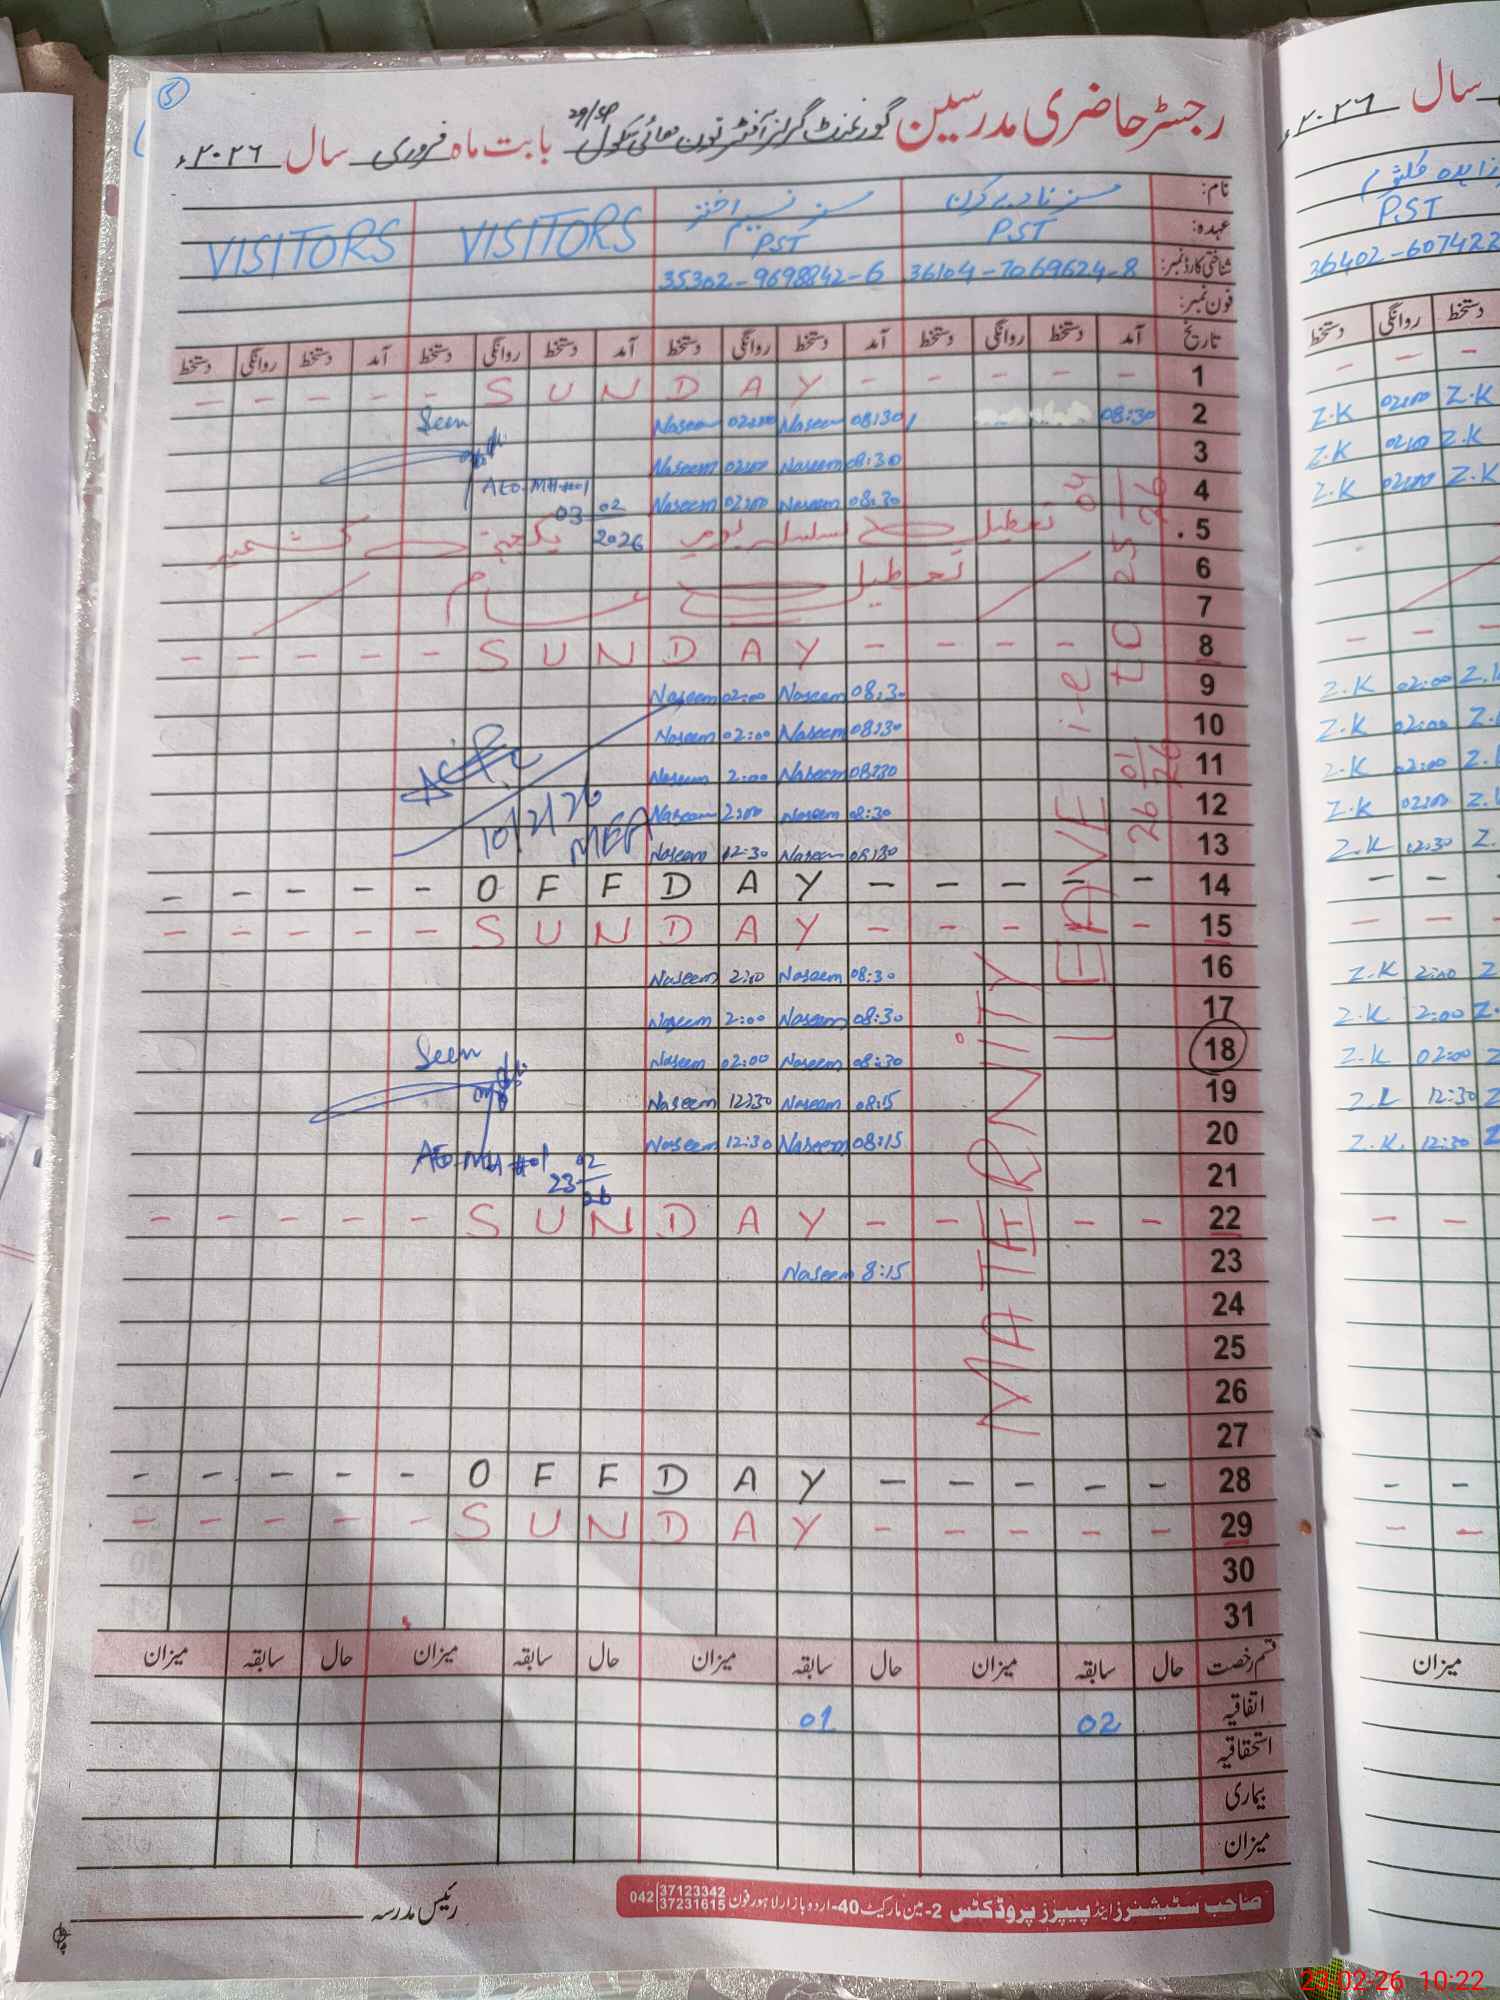 5
رجسٹر حاضری مدرسین گورنمنٹ گرلز آفٹر نون ھائی سکول 29/SP بابت ماہ فروری سال ۲۰۲۶ء
نام: مسز نادیہ کرن مسز نسیم اختر VISITORS VISITORS
عہدہ: PST PST
شناختی کارڈ نمبر: 36104-7069624-8 35302-9698842-6
فون نمبر:
تاریخ آمد دستخط روانگی دستخط آمد دستخط روانگی دستخط آمد دستخط روانگی دستخط آمد دستخط روانگی دستخط
1 - - - - - Y A D N U S - - - - -
2 08:30 08:30 Naseem 02:00 Naseem Seen
3 08:30 Naseem 02:00 Naseem
4 08:30 Naseem 02:00 Naseem AEO-MH#01
03 02 2026
5 تعطیل بسلسلہ یوم یکجہتی کشمیر
6 تعطیل عام
7
8 - - - - Y A D N U S - - - - -
9 08:30 Naseem 02:00 Naseem
10 08:30 Naseem 02:00 Naseem
11 08:30 Naseem 2:00 Naseem
12 08:30 Naseem 2:00 Naseem 10/2/26
13 08:30 Naseem 12:30 Naseem MEA
14 - - - - - Y A D F F O - - - - -
15 - - - - - Y A D N U S - - - - -
16 08:30 Naseem 2:00 Naseem
17 08:30 Naseem 2:00 Naseem
18 08:30 Naseem 02:00 Naseem Seen
19 08:15 Naseem 12:30 Naseem
20 08:15 Naseem 12:30 Naseem AEO-MH#01
21 23 02/26
22 - - - - Y A D N U S - - - - -
23 8:15 Naseem
24
25
26
27
28 - - - - - Y A D F F O - - - - -
29 - - - - - Y A D N U S - - - - -
30
31
MATERNITY LEAVE
i-e
26 01/26 to 25 03/26
قسم رخصت حال سابقہ میزان حال سابقہ میزان حال سابقہ میزان حال سابقہ میزان
اتفاقیہ 02 01
استحقاقیہ
بیماری
میزان
رئیس مدرسہ
صاحب سٹیشنرز اینڈ پیپرز پروڈکٹس 2-مین مارکیٹ 40-اردو بازار لاہور فون 042 37123342 37231615
سال ۲۰۲۶ء
زاہدہ کلثوم
PST
36402-607422
دستخط روانگی دستخط
Z.K 02:00 Z.K
Z.K 02:00 Z.K
Z.K 02:00 Z.K
Z.K 02:00 Z.K
Z.K 02:00 Z.
Z.K 02:00 Z.
Z.K 02:00 Z.
Z.K 12:30 Z.
Z.K 2:00 Z
Z.K 2:00 Z.
Z.K 02:00 Z
Z.K 12:30 Z
Z.K. 12:30 Z
میزان
23-02-26 10:22